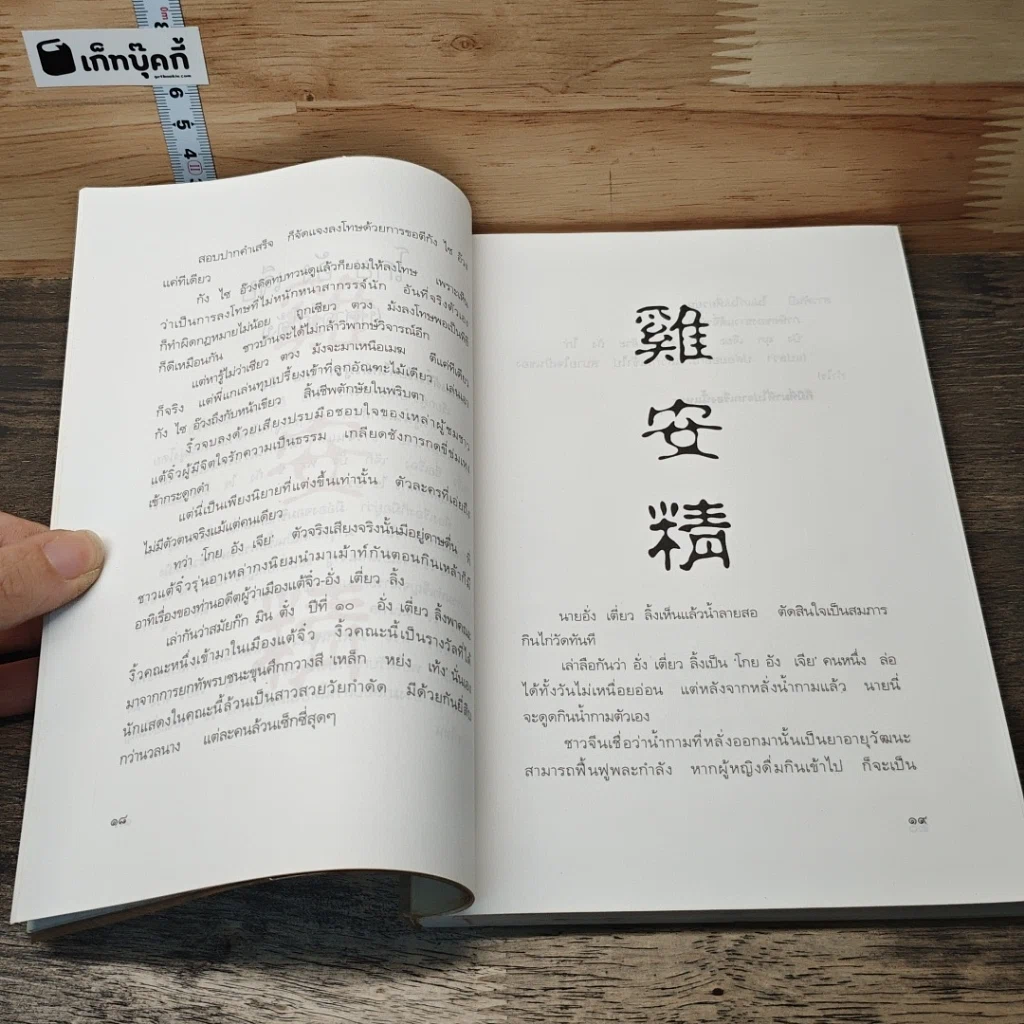 เก็ทบุ๊คกี้
getbookie.com
6
5
4
สอบปากคำเสร็จ ก็จัดแจงลงโทษด้วยการขอตีกัง ไซ อ๊วง
แค่ทีเดียว
กัง ไซ อ๊วงคิดทบทวนดูแล้วก็ยอมให้ลงโทษ เพราะเห็น
ว่าเป็นการลงโทษที่ไม่หนักหนาสากรรจ์นัก อันที่จริงตัวเอง
ก็ทำผิดกฎหมายไม่น้อย ถูกเซียว ตวง มังลงโทษพอเป็นพิธี
ก็ดีเหมือนกัน ชาวบ้านจะได้ไม่กล้าวิพากษ์วิจารณ์อีก
แต่หารู้ไม่ว่าเซียว ตวง มังจะมาเหนือเมฆ ตีแค่ทีเดียว
ก็จริง แต่พี่แกเล่นทุบเปรี้ยงเข้าที่ลูกอัณฑะไม้เดียว เล่นเอา
กัง ไซ อ๊วงถึงกับหน้าเขียว สิ้นชีพตักษัยในพริบตา
งิ้วจบลงด้วยเสียงปรบมือชอบใจของเหล่าผู้ชมชาว
แต้จิ๋วผู้มีจิตใจรักความเป็นธรรม เกลียดชังการกดขี่ข่มเหง
เข้ากระดูกดำ
แต่นี่เป็นเพียงนิยายที่แต่งขึ้นเท่านั้น ตัวละครที่เอ่ยถึง
ไม่มีตัวตนจริงแม้แต่คนเดียว
ทว่า 'โกย อัง เจีย' ตัวจริงเสียงจริงนั้นมีอยู่ดาษดื่น ที่
ชาวแต้จิ๋วรุ่นอาเหล่ากงนิยมนำมาเม้าท์กันตอนกินเหล้าก็มี
อาทิเรื่องของท่านอดีตผู้ว่าเมืองแต้จิ๋ว-อั่ง เตี่ยว ลิ้ง
เล่ากันว่าสมัยก๊ก มิน ตั๋ง ปีที่ ๑๐ อั่ง เตี่ยว ลิ้งพาคณะ
งิ้วคณะหนึ่งเข้ามาในเมืองแต้จิ๋ว งิ้วคณะนี้เป็นรางวัลที่ได้
มาจากการยกทัพรบชนะขุนศึกกวางสี 'เหล็ก หย่ง เท้ง' นั่นเอง
นักแสดงในคณะนี้ล้วนเป็นสาวสวยวัยกำดัด มีด้วยกันยี่สิบ
กว่านวลนาง แต่ละคนล้วนเซ็กซี่สุดๆ
๑๘
雞
安
精
นายอั่ง เตี่ยว ลิ้งเห็นแล้วน้ำลายสอ ตัดสินใจเป็นสมภาร
กินไก่วัดทันที
เล่าลือกันว่า อั่ง เตี่ยว ลิ้งเป็น 'โกย อัง เจีย' คนหนึ่ง ล่อ
ได้ทั้งวันไม่เหนื่อยอ่อน แต่หลังจากหลั่งน้ำกามแล้ว นายนี่
จะดูดกินน้ำกามตัวเอง
ชาวจีนเชื่อว่าน้ำกามที่หลั่งออกมานั้นเป็นยาอายุวัฒนะ
สามารถฟื้นฟูพละกำลัง หากผู้หญิงดื่มกินเข้าไป ก็จะเป็น
๑๙